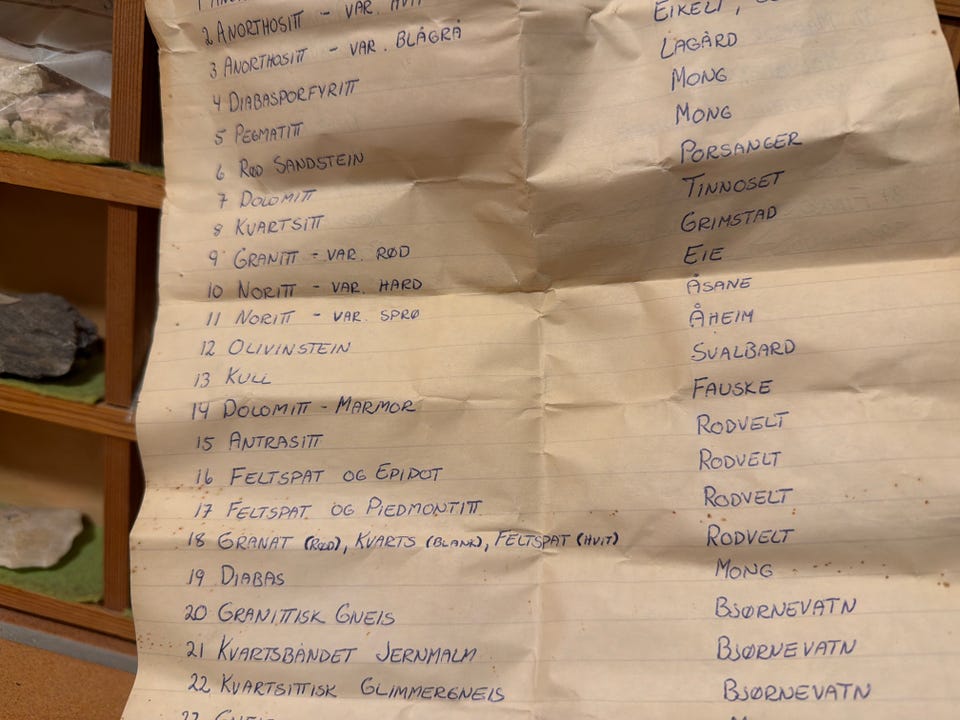 2 ANORTHOSITT - VAR. HVIT
3 ANORTHOSITT - VAR. BLÅGRÅ EIKELI,
4 DIABASPORFYRITT LAGÅRD
5 PEGMATITT MONG
6 RØD SANDSTEIN MONG
7 DOLOMITT PORSANGER
8 KVARTSITT TINNOSET
9 GRANITT - VAR. RØD GRIMSTAD
10 NORITT - VAR. HARD EIE
11 NORITT - VAR. SPRØ ÅSANE
12 OLIVINSTEIN ÅHEIM
13 KULL SVALBARD
14 DOLOMITT - MARMOR FAUSKE
15 ANTRASITT RODVELT
16 FELTSPAT OG EPIDOT RODVELT
17 FELTSPAT OG PIEDMONTITT RODVELT
18 GRANAT (RØD), KVARTS (BLANK), FELTSPAT (HVIT) RODVELT
19 DIABAS MONG
20 GRANITTISK GNEIS BJØRNEVATN
21 KVARTSBÅNDET JERNMALM BJØRNEVATN
22 KVARTSITTISK GLIMMERGNEIS BJØRNEVATN
23 GNEIS